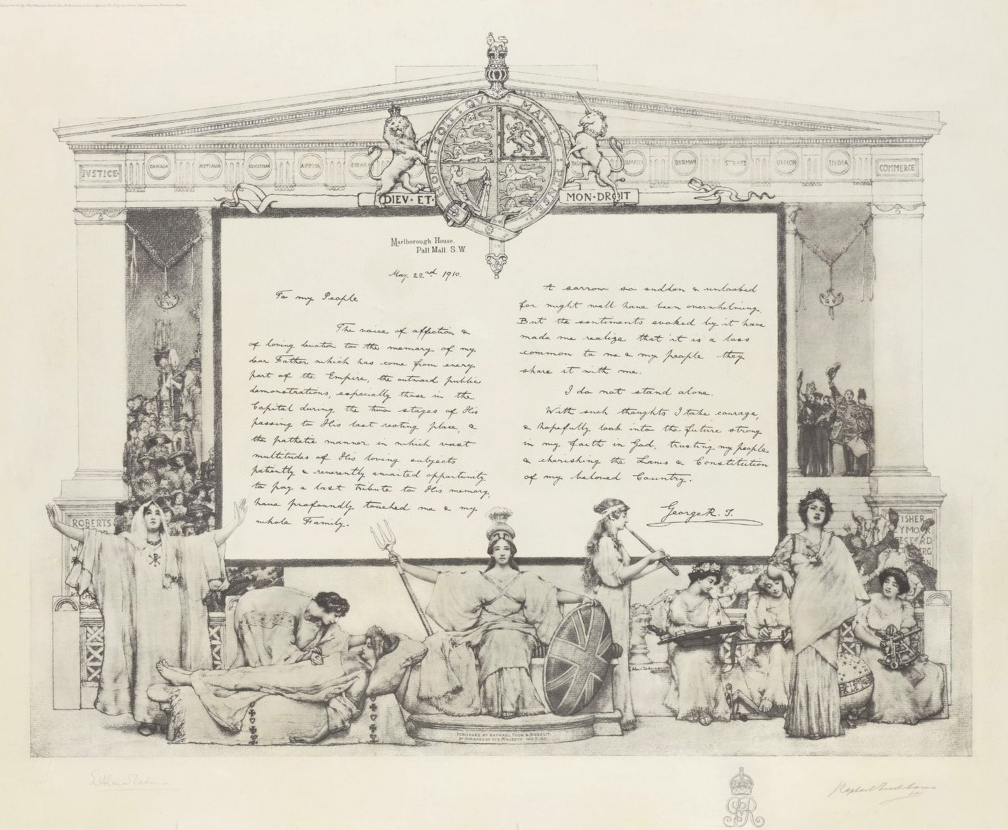 HONI SOIT QVI MAL
JVSTICE
CANADA
AFRICA
BURMAH
STRAITS
UNION
INDIA
COMMERCE
DIEV·ET·
MON·DROIT
Marlborough House,
Pall Mall. S.W.
May. 22nd 1910.
To my People
The voice of affection &
of loving devotion to the memory of my
dear Father which has come from every
part of the Empire, the outward public
demonstrations, especially those in the
Capital during the two stages of His
passing to His last resting place, &
the pathetic manner in which vast
multitudes of His loving subjects
patiently & reverently awaited opportunity
to pay a last tribute to His memory,
have profoundly touched me & my
whole Family.
A sorrow so sudden & unlooked
for might well have been overwhelming.
But the sentiments evoked by it have
made me realize that it is a loss
common to me & my people they
share it with me.
I do not stand alone.
With such thoughts I take courage,
& hopefully look into the future strong
in my faith in God, trusting my people
& cherishing the Laws & Constitution
of my beloved Country.
George R. I.
ROBERTS
PUBLISHED BY RAPHAEL TUCK & SONS LTD
BY COMMAND OF HIS MAJESTY THE KING